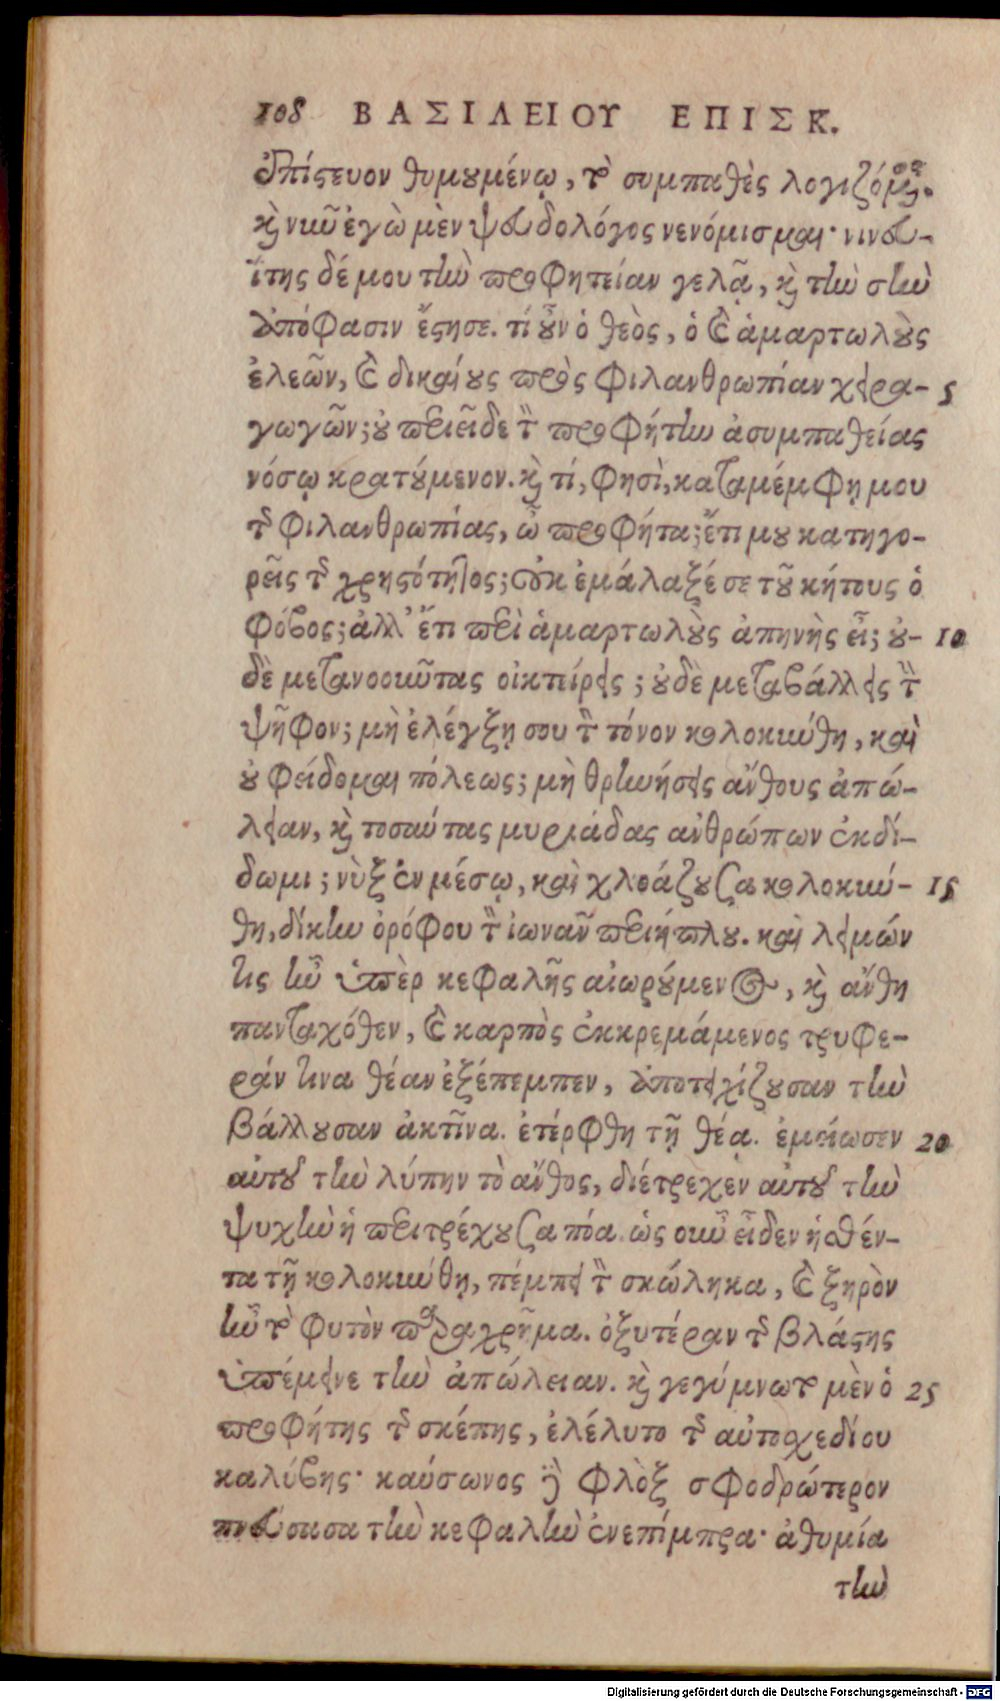 108 ΒΑΣΙΛΕΙΟΥ ΕΠΙΣΚ.
ἐπίστευον θυμουμένῳ, τὸ συμπαθὲς λογιζόμενος.
καὶ νῦν ἐγὼ μὲν ψευδολόγος νενόμισμαι· νινευ-
ΐτης δέ μου τὴν προφητείαν γελᾷ, καὶ τὴν σὴν
ἀπόφασιν ἔστησε. τί οὖν ὁ θεὸς, ὁ καὶ ἁμαρτωλοὺς
ἐλεῶν, καὶ δικαίους πρὸς φιλανθρωπίαν χειρα- 5
γωγῶν; οὐ περιεῖδε τὸν προφήτην ἀσυμπαθείας
νόσῳ κρατούμενον. καὶ τί, φησὶ, καταμέμφῃ μου
τῆς φιλανθρωπίας, ὦ προφῆτα; ἔτι μου κατηγο-
ρεῖς τῆς χρηστότητος; οὐκ ἐμάλαξέ σε τοῦ κήτους ὁ
φόβος; ἀλλ' ἔτι περὶ ἁμαρτωλοὺς ἀπηνὴς εἶ; οὐ- 10
δὲ μετανοοῦντας οἰκτείρεις; οὐδὲ μεταβάλλεις τὴν
ψῆφον; μὴ ἐλέγξῃ σου τὸν τόνον κολοκύνθη, καὶ
οὐ φείδομαι πόλεως; μὴ θρηνήσεις ἄνθους ἀπώ-
λειαν, καὶ τοσαύτας μυριάδας ἀνθρώπων ἐκδί-
δωμι; νὺξ ἐν μέσῳ, καὶ χλοάζουσα κολοκύν- 15
θη, δίκην ὀρόφου τὸν ἰωνᾶν περιήπλου. καὶ λειμών
τις ἦν ὑπὲρ κεφαλῆς αἰωρούμενος, καὶ ἄνθη
πανταχόθεν, καὶ καρπὸς ἐκκρεμάμενος τρυφε-
ράν τινα θέαν ἐξέπεμπεν, ἀποτειχίζουσαν τὴν
βάλλουσαν ἀκτῖνα. ἐτέρφθη τῇ θέᾳ. ἐμείωσεν 20
αὐτοῦ τὴν λύπην τὸ ἄνθος, διέτρεχεν αὐτοῦ τὴν
ψυχὴν ἡ περιτρέχουσα πόα. ὡς οὖν εἶδεν ἡσθέν-
τα τῇ κολοκύνθῃ, πέμπει τὸν σκώληκα, καὶ ξηρὸν
ἦν τὸ φυτὸν παραχρῆμα. ὀξυτέραν τῆς βλάστης
ὑπέμεινε τὴν ἀπώλειαν. καὶ γεγύμνωτο μὲν ὁ 25
προφήτης τῆς σκέπης, ἐλέλυτο τῆς αὐτοσχεδίου
καλύβης· καύσωνος δὲ φλὸξ σφοδρώτερον
πνεύσασα τὴν κεφαλὴν ἐνεπίμπρα· ἀθυμία
τὴν
Digitalisierung gefördert durch die Deutsche Forschungsgemeinschaft - DFG